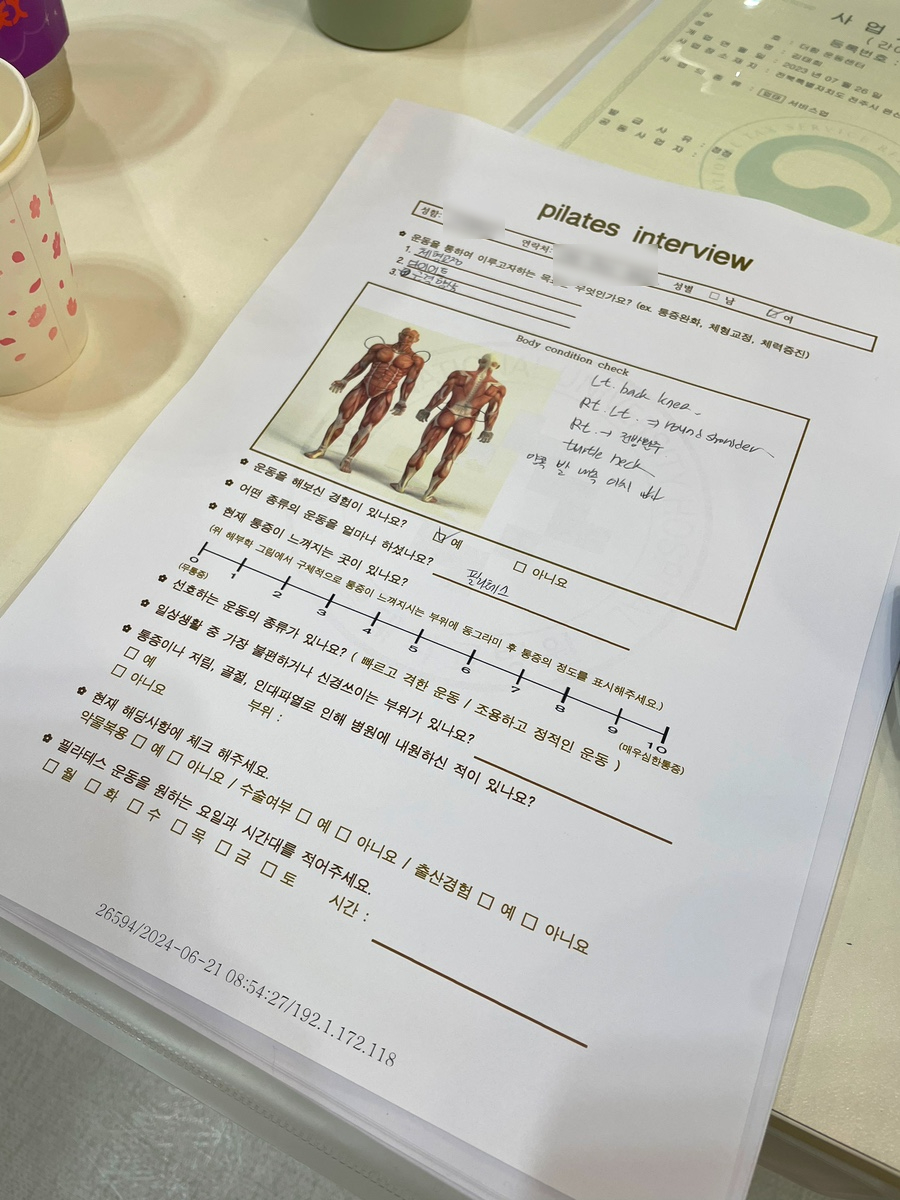 사 업
등록번호 :
: 더힘 운동센터
: 김태희
: 2023 년 07 월 26 일
사업장소재지 : 전북특별자치도 전주시 완산
사업의 종류 : 업태 서비스업
발 급 사 유 : 정정
공 동 사 업 자 :
pilates interview
성함: 연락처: 성별 □ 남 ☑ 여
운동을 통하여 이루고자하는 목표는 무엇인가요? (ex. 통증완화, 체형교정, 체력증진)
1. 체형교정
2. 다이어트
3.
Body condition check
Lt. back knee.
Rt. Lt. → round shoulder
Rt. →
turtle neck
양쪽 발 내측 아치
운동을 해보신 경험이 있나요? ☑ 예 □ 아니요
어떤 종류의 운동을 얼마나 하셨나요? 필라테스
현재 통증이 느껴지는 곳이 있나요?
(위 해부학 그림에서 구체적으로 통증이 느껴지시는 부위에 동그라미 후 통증의 정도를 표시해주세요.)
0 1 2 3 4 5 6 7 8 9 10
(무통증) (매우심한통증)
선호하는 운동의 종류가 있나요? ( 빠르고 격한 운동 / 조용하고 정적인 운동 )
일상생활 중 가장 불편하거나 신경쓰이는 부위가 있나요?
통증이나 저림, 골절, 인대파열로 인해 병원에 내원하신 적이 있나요?
□ 예
□ 아니요 부위 :
현재 해당사항에 체크 해주세요.
약물복용 □ 예 □ 아니요 / 수술여부 □ 예 □ 아니요 / 출산경험 □ 예 □ 아니요
필라테스 운동을 원하는 요일과 시간대를 적어주세요.
□ 월 □ 화 □ 수 □ 목 □ 금 □ 토 시간 :
26594/2024-06-21 08:54:27/192.1.172.118